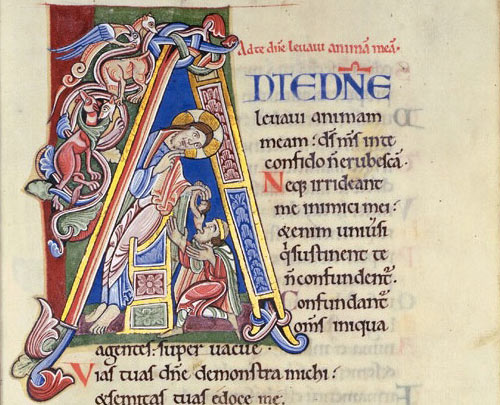 Ad te dñe leuaui animā meā.
ADTEDÑE
leuaui animam
meam: d̄s m̄s inte
confido ñerubescā.
Neq; irrideant
me inimici mei:
&enim uniuˢi
q̇sustinent te
ñconfundent᷑.
Confundant᷑
om̄s iniqua
agentes: super uacue.
Vias tuas dñe demonstra michi:
&semitas tuas edoce me.